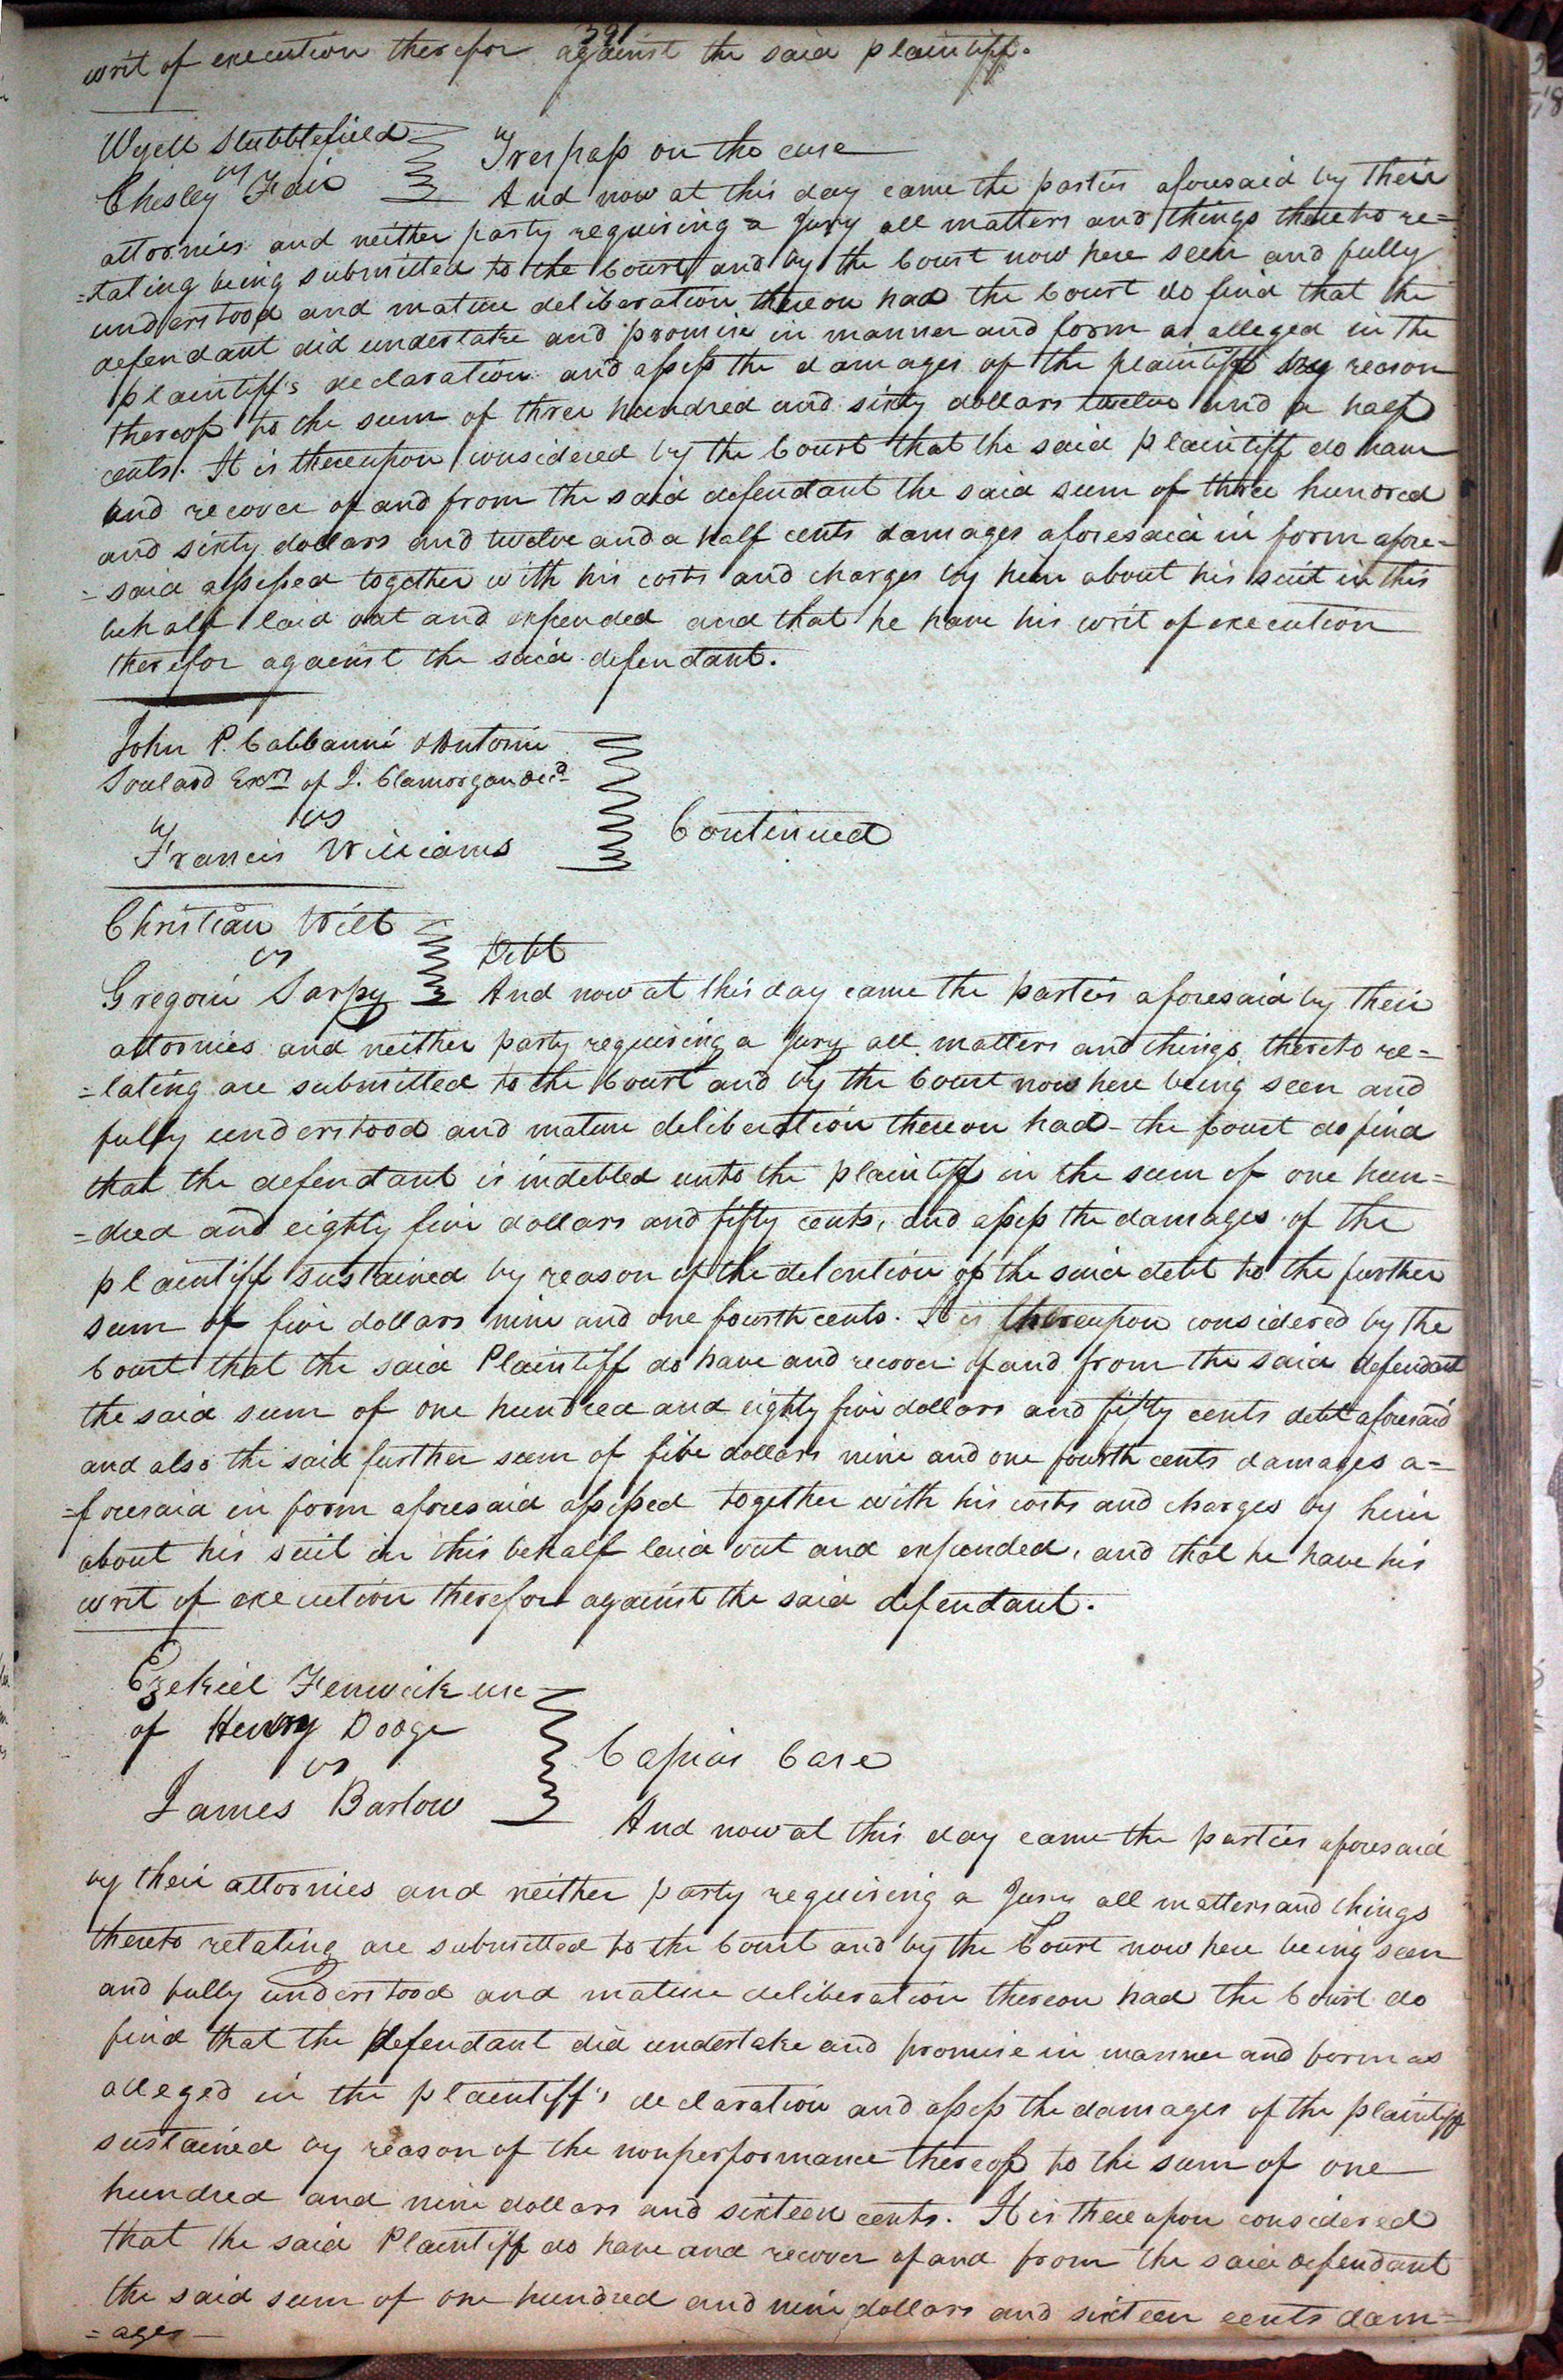 391
writ of execution therefor against the said plaintiff.
Wyett Stubblefield
vs
Chesley Fair
Trespass on the case
And now at this day came the parties aforesaid by their
attornies and neither party requiring a Jury all matters and things thereto re=
=lating being submitted to the Court and by the Court now here seen and fully
understood and mature deliberation thereon had the Court do find that the
defendant did undertake and promise in manner and form as alleged in the
plaintiff's declaration and assess the damages of the plaintiff by reason
thereof to the sum of three hundred and sixty dollars twelve and a half
cents. It is thereupon considered by the Court that the said plaintiff do have
and recover of and from the said defendant the said sum of three hundred
and sixty dollars and twelve and a half cents damages aforesaid in form afore=
=said assessed together with his costs and charges by him about his suit in this
behalf laid out and expended and that he have his writ of execution
therefor against the said defendant.
John P. Cabbanné & Antoine
Soulard Exrs of J. Clamorgan decd
vs
Francis Williams
Continued
Christian Wilt
vs
Gregoire Sarpy
Debt
And now at this day came the parties aforesaid by their
attornies and neither party requiring a Jury all matters and things thereto re=
=lating are submitted to the Court and by the Court now here being seen and
fully understood and mature deliberation thereon had - the Court do find
that the defendant is indebted unto the plaintiff in the sum of one hun=
=dred and eighty five dollars and fifty cents, and assess the damages of the
plaintiff sustained by reason of the detention of the said debt to the further
sum of five dollars nine and one fourth cents. It is thereupon considered by the
Court that the said Plaintiff do have and recover of and from the said defendant
the said sum of one hundred and eighty five dollars and fifty cents debt aforesaid
and also the said further sum of five dollars nine and one fourth cents damages a=
=foresaid in form aforesaid assessed together with his costs and charges by him
about his suit in this behalf laid out and expended, and that he have his
writ of execution therefor against the said defendant.
Ezekiel Fenwick use
of Henry Dodge
vs
James Barlow
Capias Case
And now at this day came the parties aforesaid
by their attornies and neither party requiring a Jury all matters and things
thereto relating are submitted to the Court and by the Court now here being seen
and fully understood and mature deliberation thereon had the Court do
find that the defendant did undertake and promise in manner and form as
alleged in the plaintiff's declaration and assess the damages of the plaintiff
sustained by reason of the nonperformance thereof to the sum of one
hundred and nine dollars and sixteen cents. It is thereupon considered
that the said Plaintiff do have and recover of and from the said defendant
the said sum of one hundred and nine dollars and sixteen cents dam=
=ages